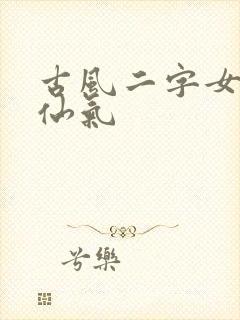 古風二字女
仙氣
兮樂